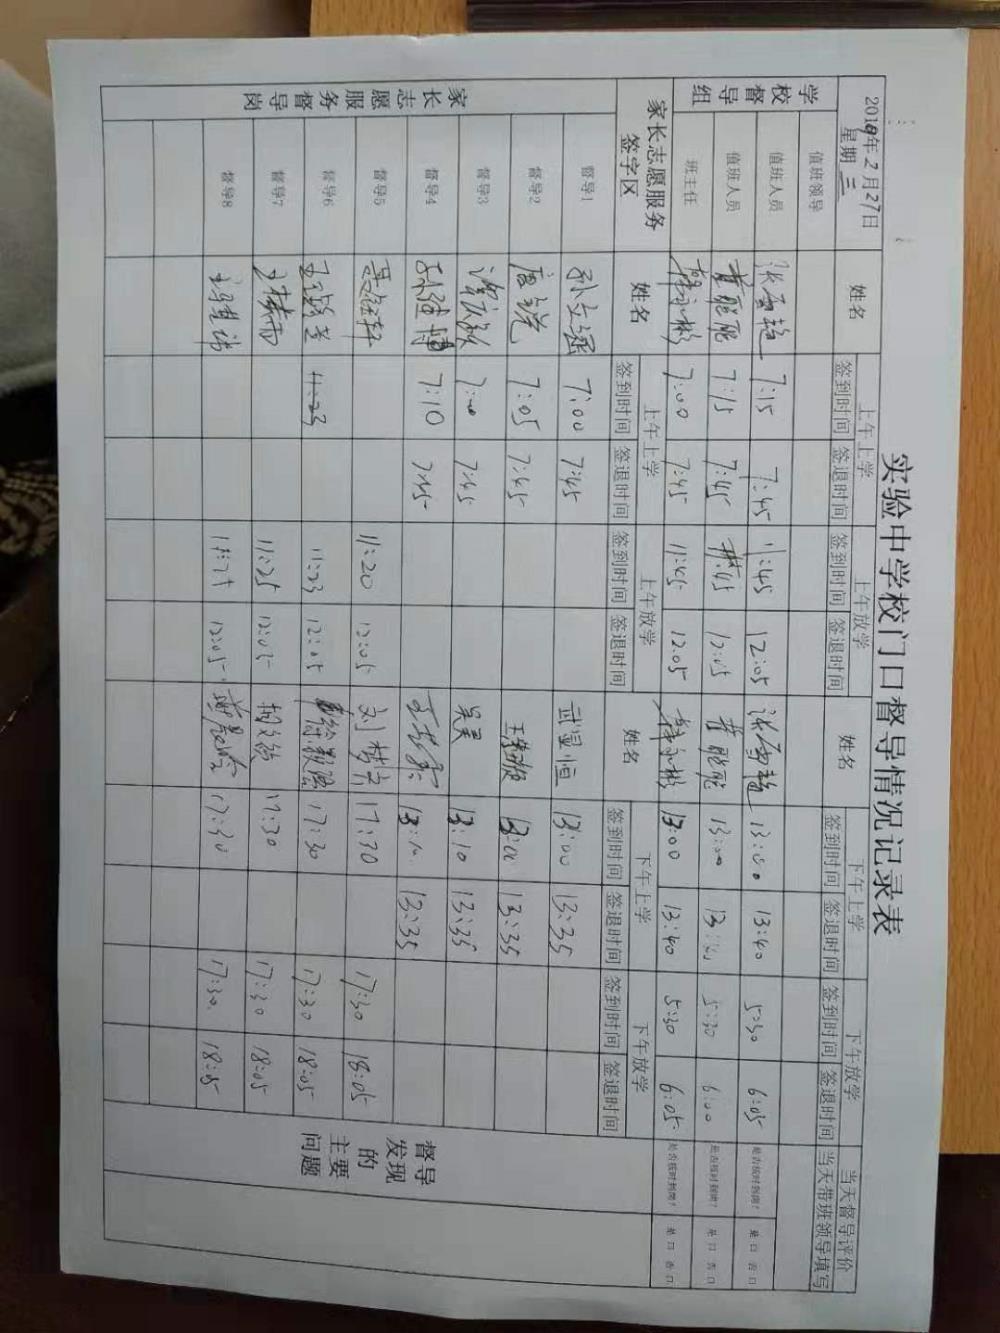 实验中学校门口督导情况记录表
2019年2月27日
星期 三
姓名 上午上学 上午放学 姓名 下午上学 下午放学 当天督导评价
签到时间 签退时间 签到时间 签退时间 签到时间 签退时间 签到时间 签退时间 当天带班领导填写
学校督导组
值班领导
值班人员 7:15 7:45 11:45 12:05 13:00 13:40 5:30 6:05 是否按时到岗? 是口 否口
值班人员 黄聪聪 7:15 7:45 11:45 12:05 黄聪聪 13:00 5:30 6:00 是否按时到岗? 是口 否口
班主任 7:00 7:45 11:45 12.05 13:00 13:40 5:30 6:05 是否按时到岗? 是口 否口
家长志愿服务签字区 姓名 上午上学 上午放学 姓名 下午上学 下午放学
签到时间 签退时间 签到时间 签退时间 签到时间 签退时间 签到时间 签退时间
家长志愿服务督导岗
督导1 孙立涵 7:00 7:45 武显恒 13:00 13:35
督导2 7:05 7:45 13:00 13:35
督导3 7:00 7:45 吴昊 13:10 13:35
督导4 7:10 7:45 13:10 13:35
督导5 11:20 12:05 17:30 17:30 18:05
督导6 11:23 11:23 12:05 17:30 17:30 18:05
督导7 11:25 12:05 17:30 17:30 18:05
督导8 11:25 12:05 17:30 17:30 18:05
督导发现的主要问题